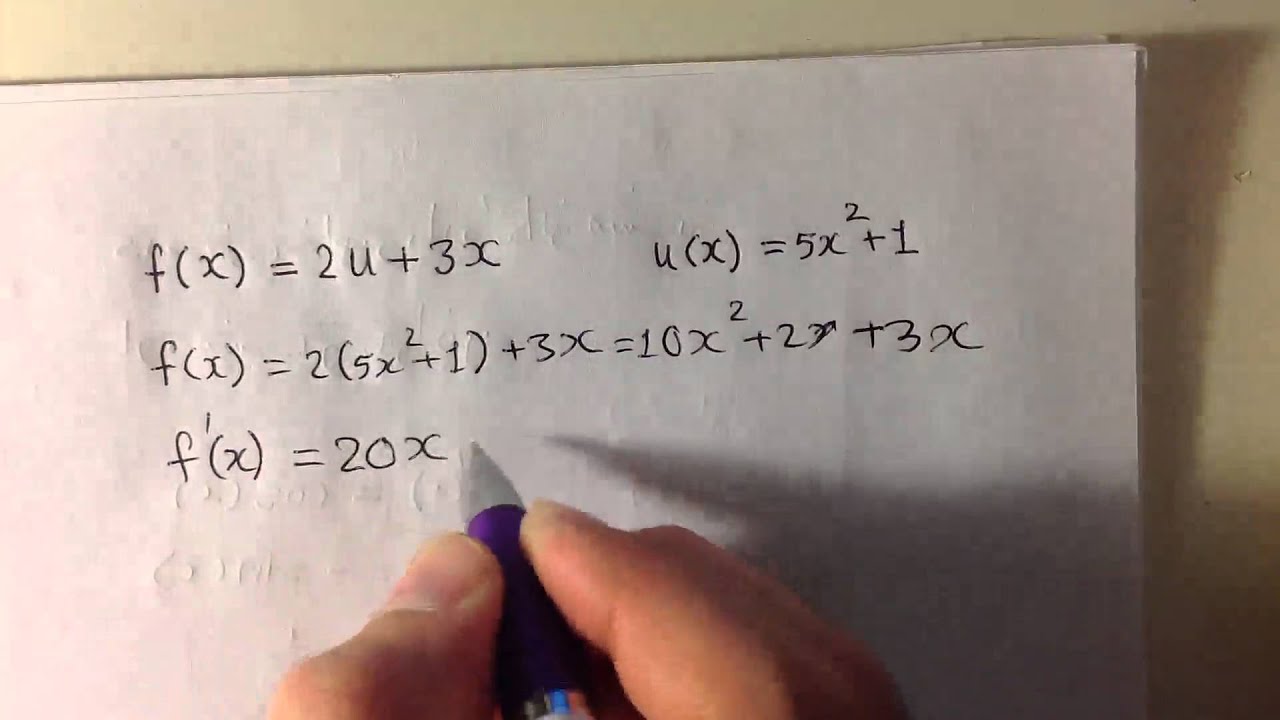 f(x) = 2u + 3x u(x) = 5x² + 1
f(x) = 2(5x² + 1) + 3x = 10x² + 2x + 3x
f'(x) = 20x